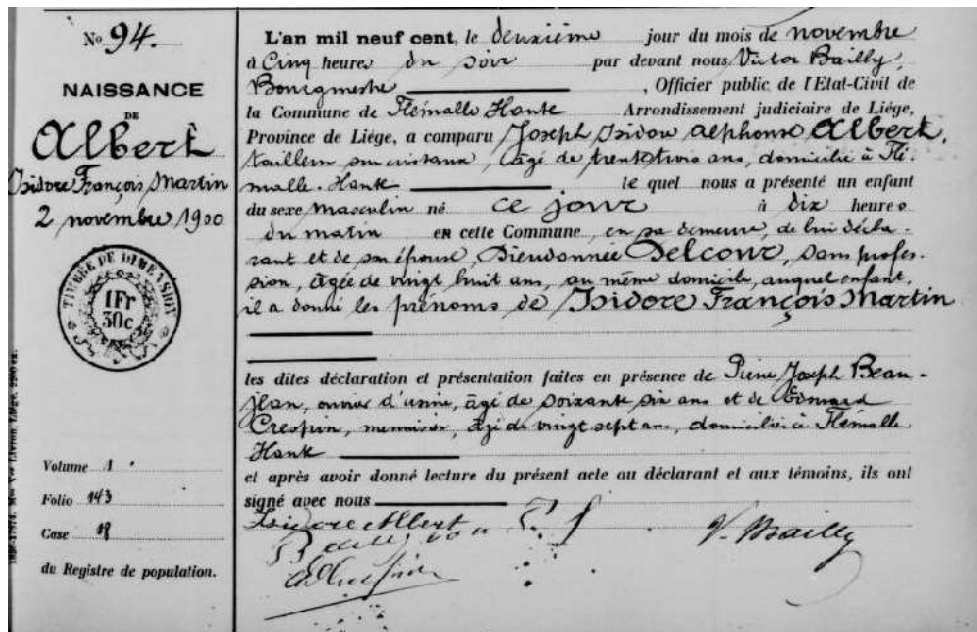 No 94.
NAISSANCE
DE
Albert
Isidore François Martin
2 novembre 1900
TIMBRE DE DIMENSION
1 Fr
30c
Volume 1
Folio 143
Case 18
du Registre de population.
L'an mil neuf cent, le deuxième jour du mois de novembre
à Cinq heures du soir par devant nous Victor Bailly,
Bourgmestre, Officier public de l'Etat-Civil de
la Commune de Flémalle Haute Arrondissement judiciaire de Liége,
Province de Liége, a comparu Joseph Isidore Alphonse Albert,
tailleur sur cristaux, âgé de trente trois ans, domicilié à Flé-
malle-Haute, le quel nous a présenté un enfant
du sexe masculin né ce jour à dix heures
du matin en cette Commune, en sa demeure, de lui décla-
rant et de son épouse, Dieudonnée Delcour, sans profes-
sion, âgée de vingt huit ans, au même domicile, auquel enfant,
il a donné les prénoms de Isidore François Martin
les dites déclaration et présentation faites en présence de Pierre Joseph Beau-
jean, ouvrier d'usine, âgé de soixante six ans et de Edouard
Crespin, menuisier, âgé de vingt sept ans, domiciliés à Flémalle
Haute
et après avoir donné lecture du présent acte au déclarant et aux témoins, ils ont
signé avec nous
Isidore Albert
V. Bailly